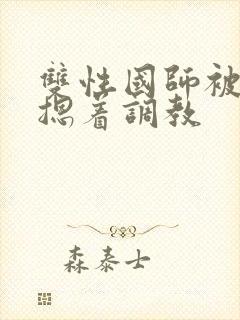 雙性國師被
摁着調教
森泰士